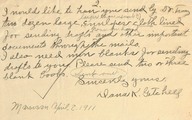 I would like to have you send by Dr. Tracy
two dozen large Envelopes cloth lined
for sending drafts and other important
documents through the mails.
I also need more blanks for sending
drafts to you. Please send two or three
blank books.
Sincerely yours,
Dana K. Getchell
Marsovan April 2, 1911